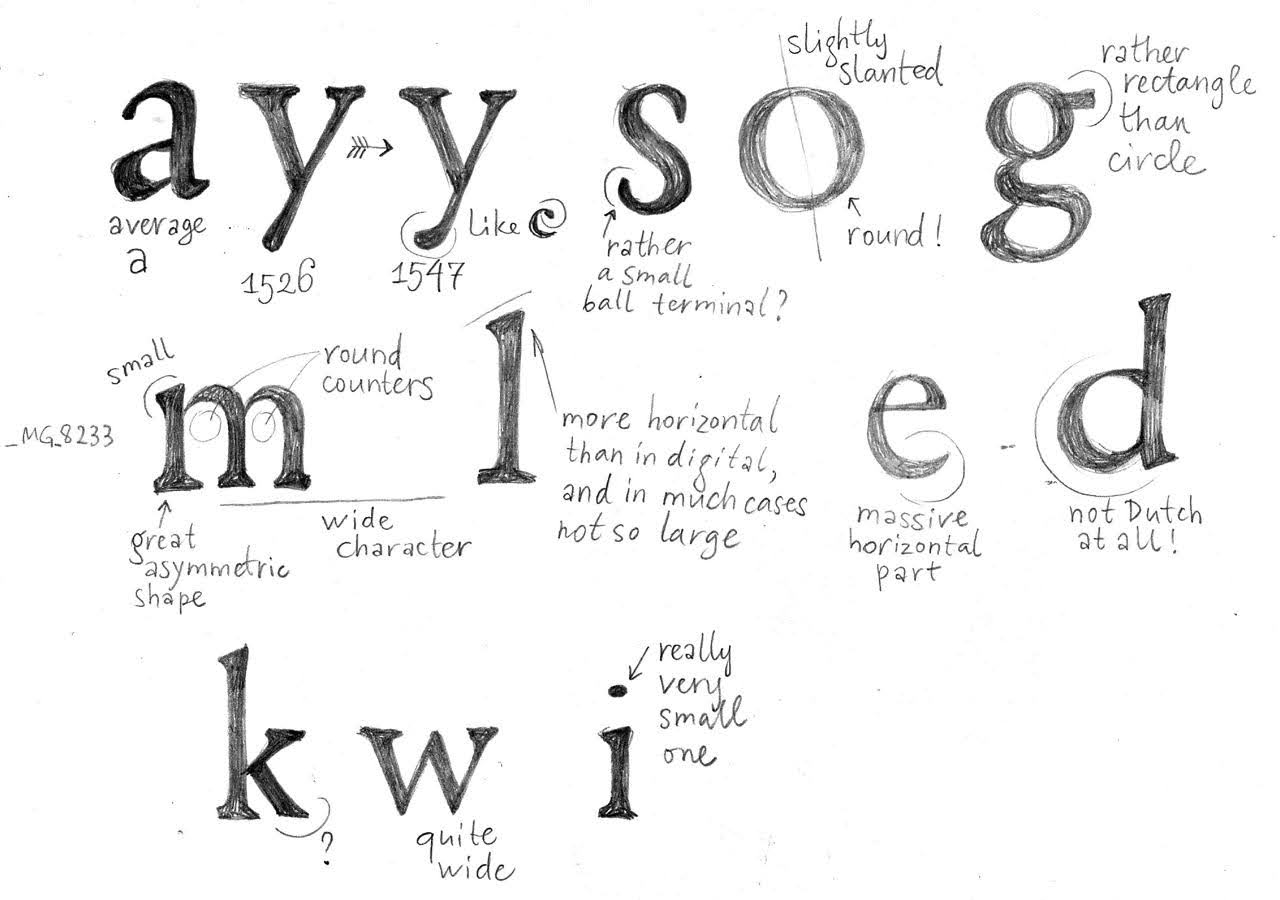 a y y s o g
slightly
slanted
rather
rectangle
than
circle
average
a
1526
1547
like c
rather
a small
ball terminal?
round!
m l e d
small
round
counters
_MG_8233
great
asymmetric
shape
wide
character
more horizontal
than in digital,
and in much cases
not so large
massive
horizontal
part
not Dutch
at all!
k w i
?
quite
wide
really
very
small
one